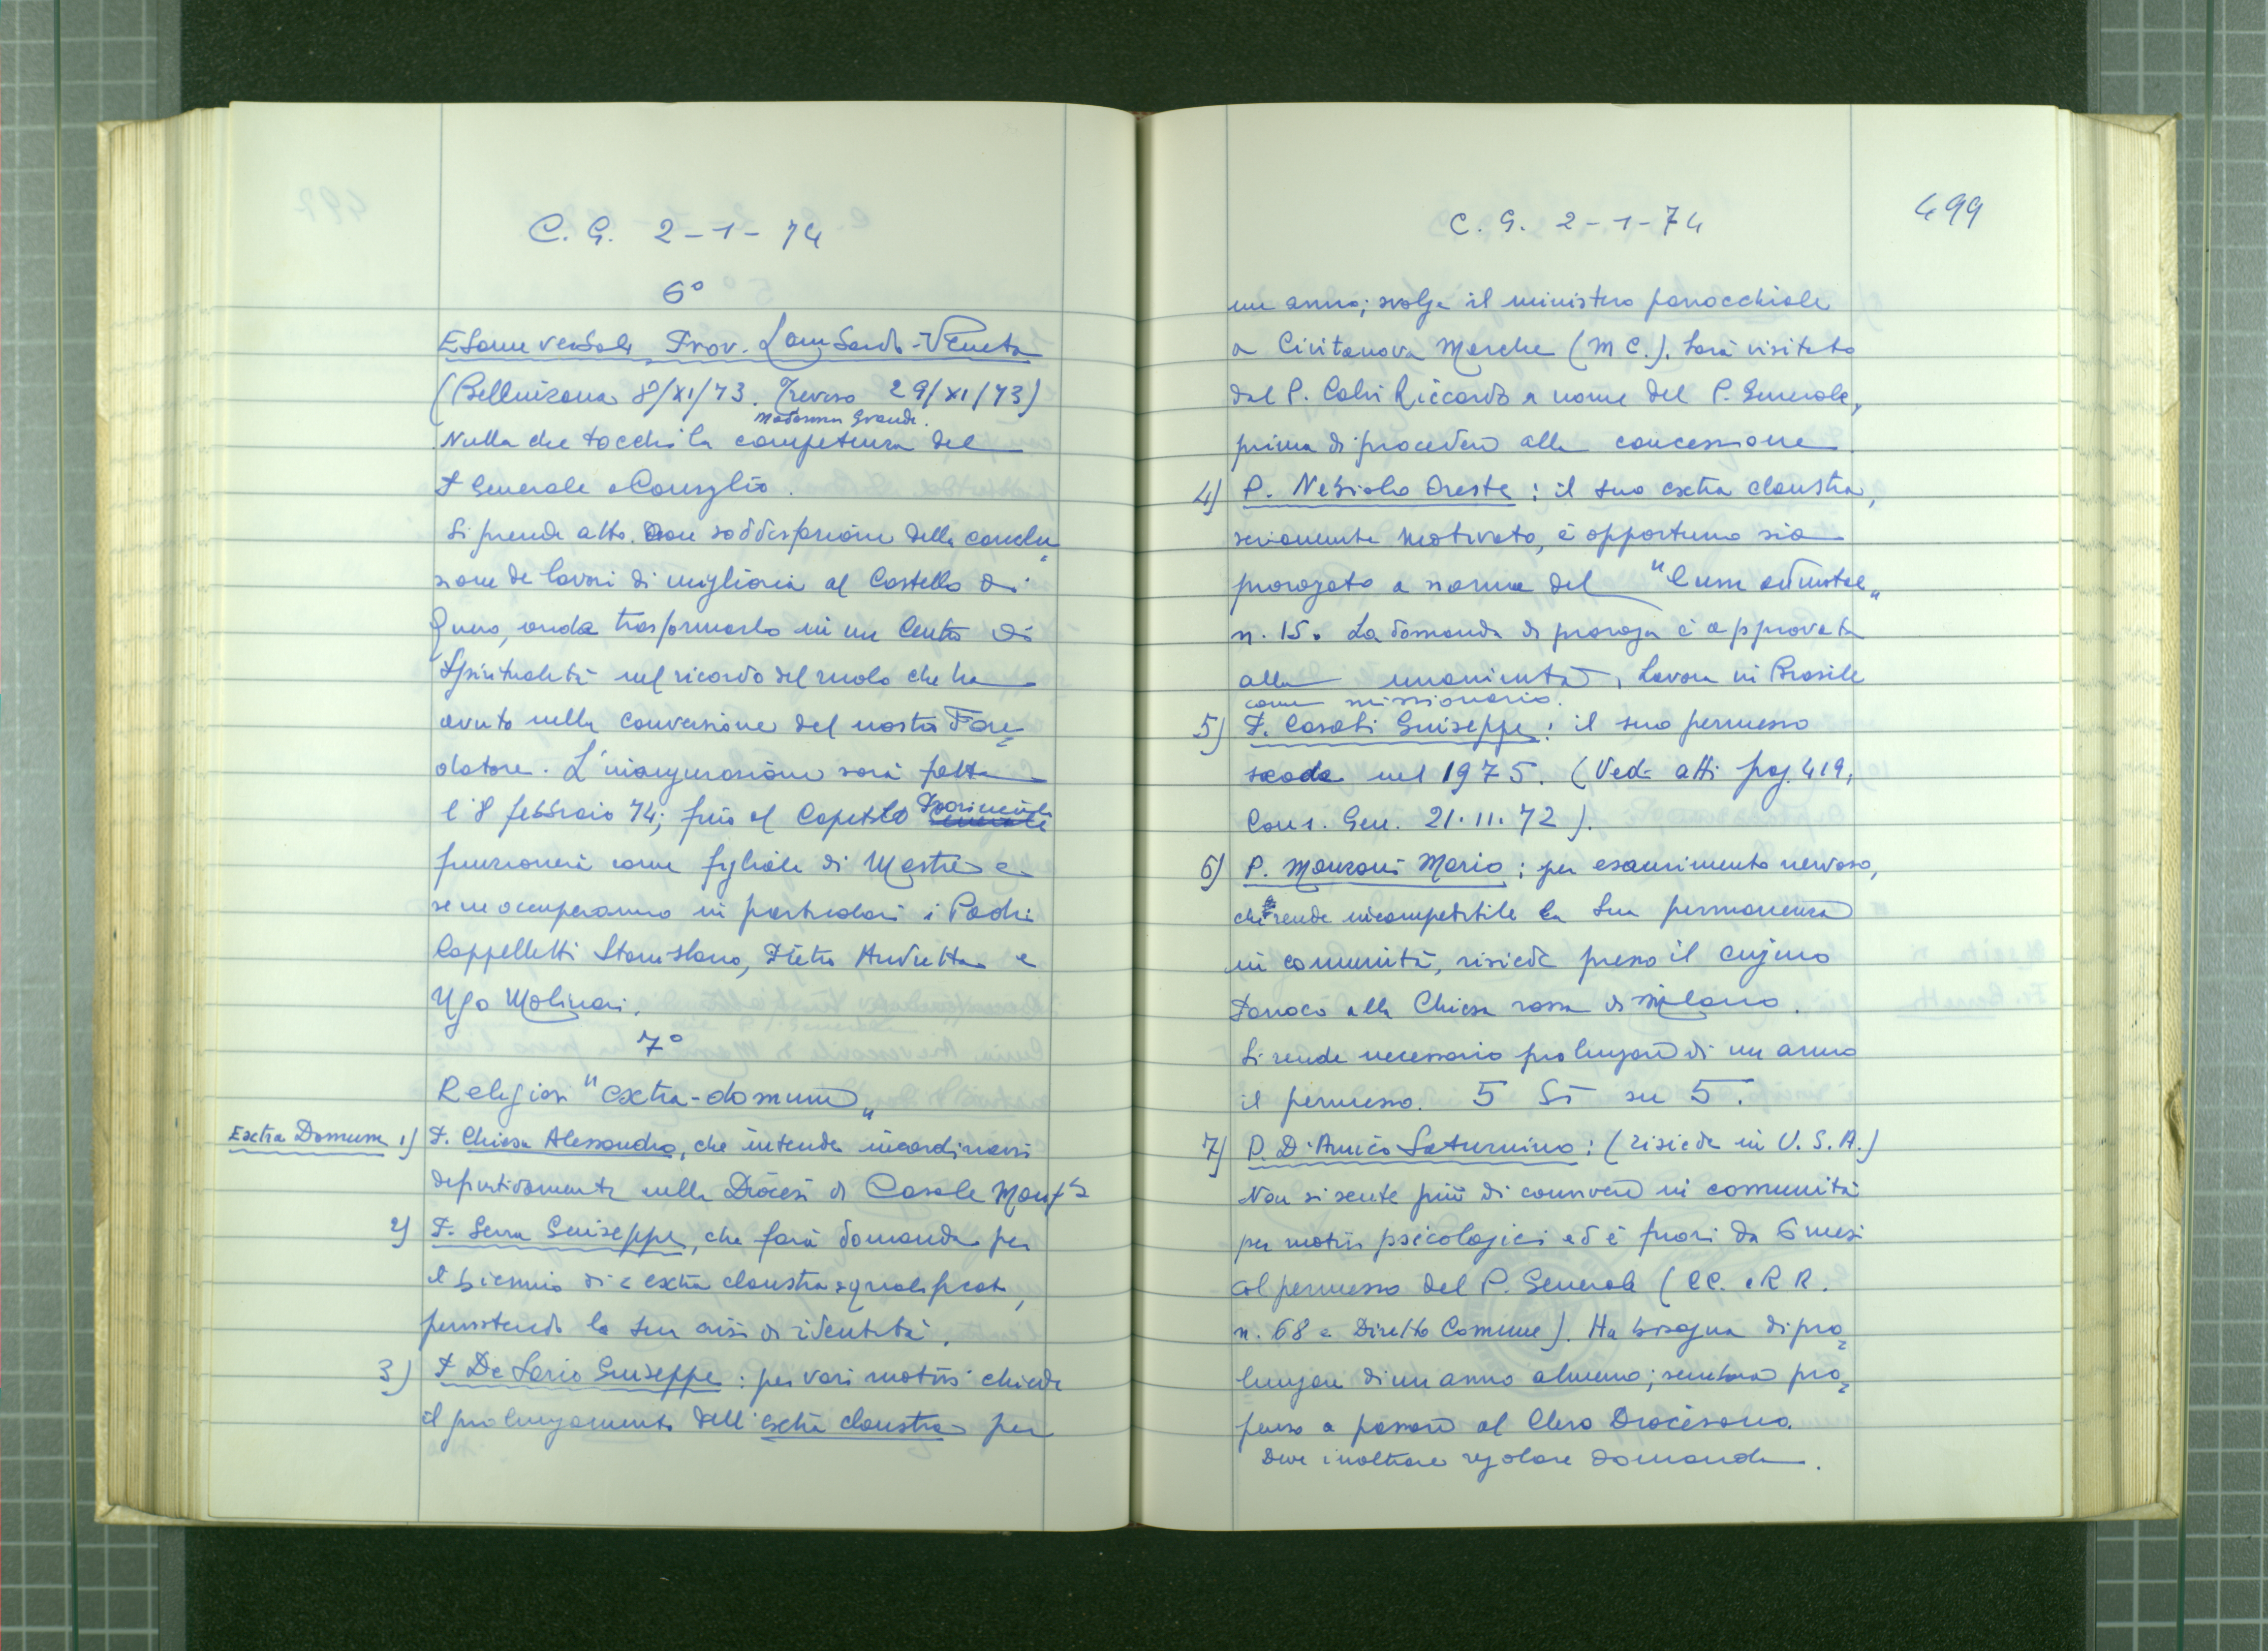 C. G. 2-1-74
6°
Esame verbali Prov. Lombardo-Veneta
(Bellinzona 8/XI/73. Treviso 29/XI/73)
Madonna Grande.
Nulla che tocchi la competenza del
P. Generale e Consiglio.
Si prende atto con soddisfazione della conclu=
sione de lavori di miglioria al Castello di
Quero, onde trasformarlo in un Centro di
Spiritualità nel ricordo del ruolo che ha
avuto nella conversione del nostro Fon=
datore. L'inaugurazione sarà fatta
l'8 febbraio 74; fino al Capitolo Provinciale
funzionerà come figliale di Mestre e
se ne occuperanno in particolare i Padri
Cappelletti Stanislao, Pietro Andretta e
Ugo Molinari.
7°
Religiosi "extra-domum"
Extra Domum 1) P. Chiesa Alessandro, che intende incardinarsi
definitivamente nella Diocesi di Casale Monf.to
2) P. Serra Giuseppe, che farà domanda per
il biennio di extra claustra
persistendo la sua crisi di identità.
3) P. De Lorio Giuseppe: per vari motivi chiede
il prolungamento dell'extra claustra per
C. G. 2-1-74
499
un anno; svolge il ministero parrocchiale
a Civitanova Marche (MC.). Sarà visitato
dal P. Calvi Riccardo a nome del P. Generale,
prima di procedere alla concessione
4) P. Nebiolo Oreste: il suo extra claustra,
seriamente motivato, è opportuno sia
prorogato a norma del "Cum admotae"
n. 15. La domanda di proroga è approvata
alla unanimità. Lavora in Brasile
come missionario.
5) P. Casati Giuseppe: il suo permesso
scade nel 1975. (Vedi atti pag. 419,
Cons. Gen. 21.11.72).
6) P. Manzoni Mario: per esaurimento nervoso,
che rende incompatibile la sua permanenza
in comunità, risiede presso il cugino
Parroco alla Chiesa rossa di Milano.
Si rende necessario prolungare di un anno
il permesso. 5 Sì su 5.
7) P. D'Amico Saturnino: (risiede in U.S.A.)
Non si sente più di convivere in comunità
per motivi psicologici ed è fuori da 6 mesi
col permesso del P. Generale (CC. e RR.
n. 68 e Diritto Comune). Ha bisogno di pro=
lungare di un anno almeno; sembra pro=
penso a passare al Clero Diocesano.
Deve inoltrare regolare domanda.